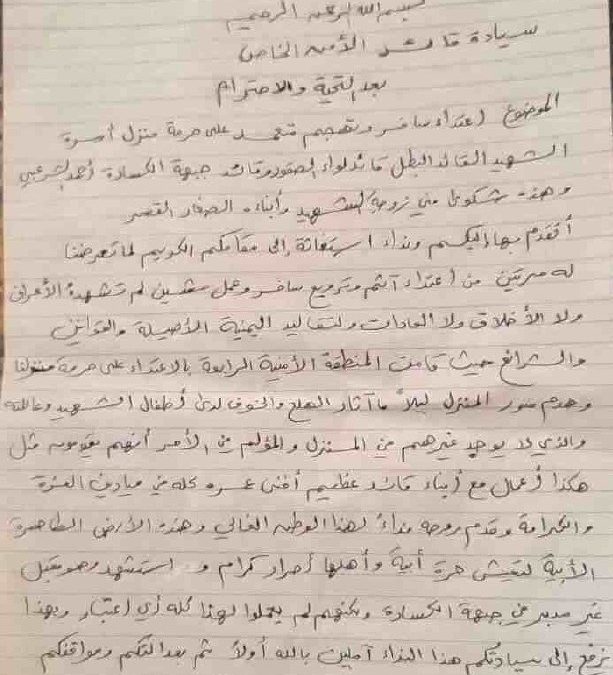 بسم الله الرحمن الرحيم
سيادة قائد الأمن الخاص
بعد التحية والاحترام
الموضوع اعتداء سافر وتهجم متعمد على حرمة منزل أسرة
الشهيد القائد البطل قائد لواء الصقور وقائد جبهة الكسارة أحمد الشرعبي
وهذه شكوى من زوجة الشهيد وأبناءه الصغار القصر
أتقدم بها إليكم ونداء استغاثة إلى مقامكم الكريم لما تعرضنا
له مرتين من اعتداء آثم وترويع سافر وعمل مشين لم تشهده الأعراف
ولا الأخلاق ولا العادات والتقاليد اليمنية الأصيلة والقوانين
والشرائع حيث قامت المنطقة الأمنية الرابعة بالاعتداء على حرمة منزلنا
وهدم سور المنزل ليلاً ما آثار الهلع والخوف لدى أطفال الشهيد وعائلته
والذي لا يوجد غيرهم في المنزل والمؤلم في الأمر أنهم يقومون مثل
هكذا أعمال مع أبناء قائد عظيم أفنى عمره كله في ميادين العزة
والكرامة وقدم روحه فداءً لهذا الوطن الغالي وهذه الأرض الطاهرة
الأبية لتعيش حرة أبية وأهلها أحرار كرام و استشهد وهو مقبل
غير مدبر في جبهة الكسارة ولكنهم لم يعملوا لهذا كله أي اعتبار وبهذا
نرفع إلى سيادتكم هذا النداء آملين بالله أولاً ثم بعدالتكم ومواقفكم